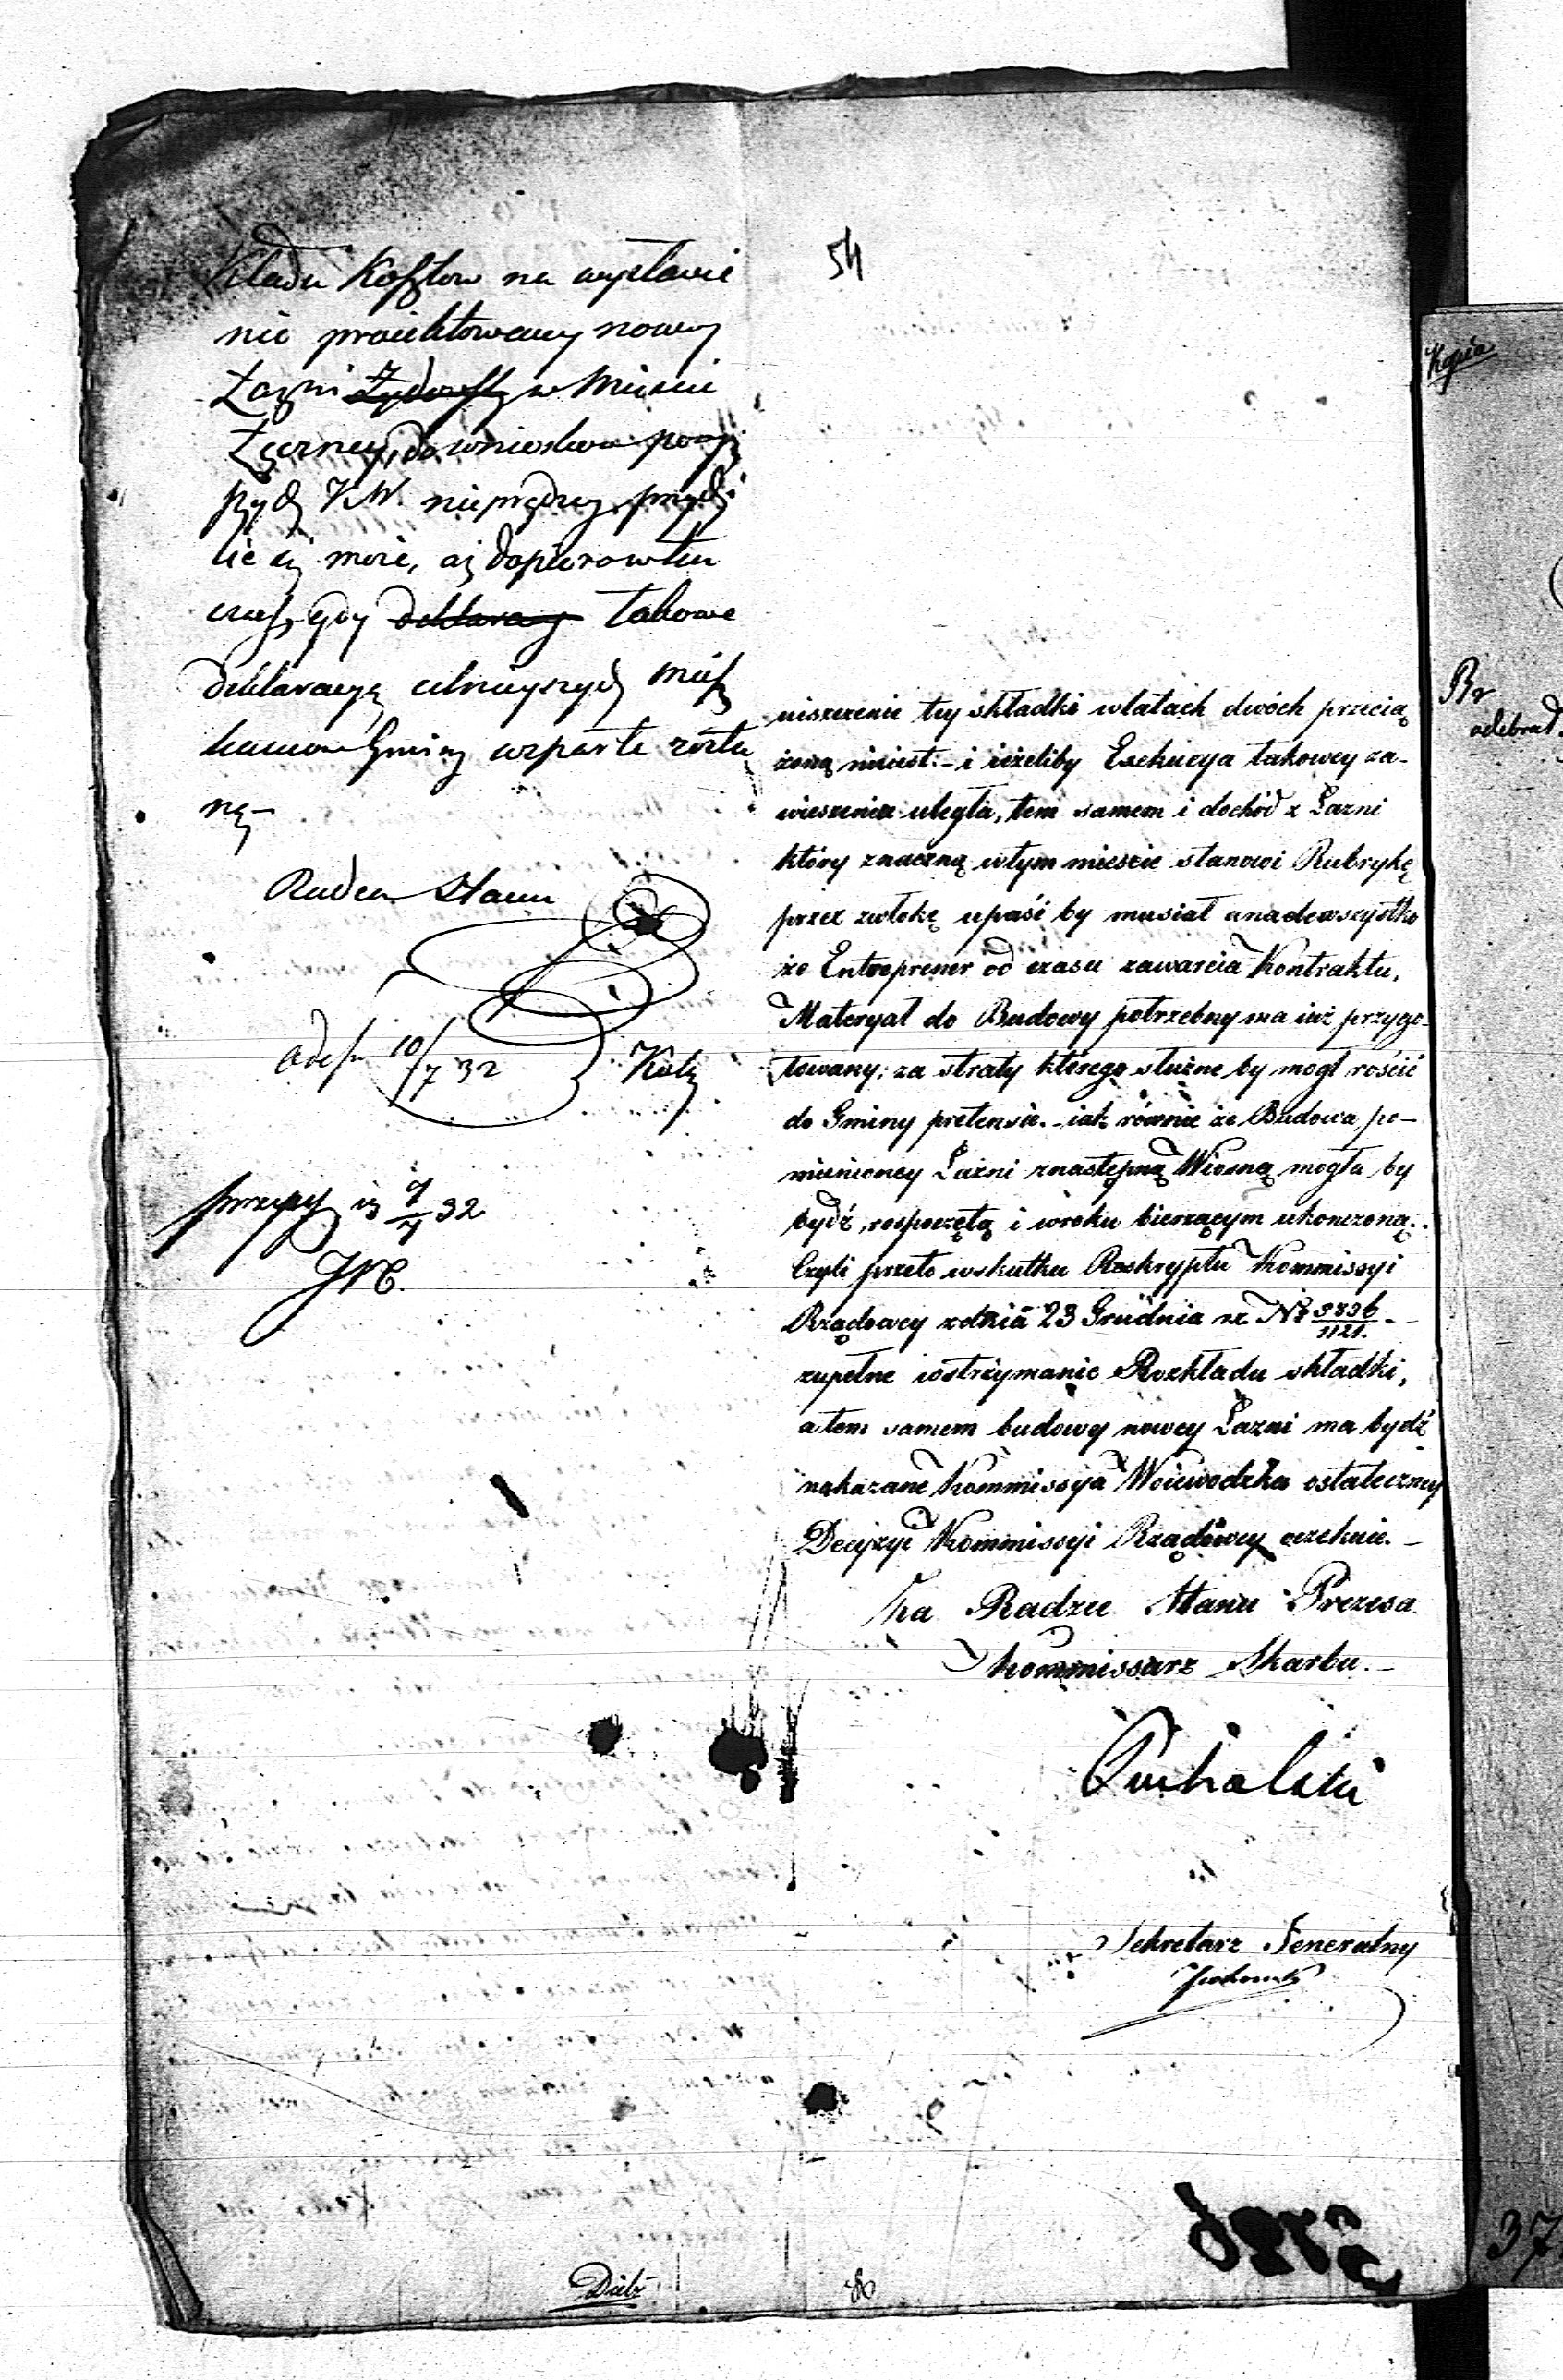 54
kładu Kosztow na wystawie
nie proiektowaney nowey
Łazni Żydowsky w Mieście
Łęczney, do wniosków
K.W. nieprędzey
lic się może, aż dopiero w ten
czas, gdy deklaracy takowe
deklaracye celnieyszych miesz
kancow Gminy wsparte zosta
ną
Radca Stanu
10/7 32
7/7 32
uiszczenie tey składki w latach dwóch przecią
żoną
i ieżeliby Exekucya takowey za-
wieszenia uległa, tem samem i dochód z Łazni
który znaczną w tym mieście stanowi Rubrykę
przez zwłokę upaść by musiał a nadewszystko
że Entreprener od czasu zawarcia Kontraktu,
Materyał do Budowy potrzebny ma iuż przygo-
towany; za straty którego słuźne by mogł rościć
do Gminy pretensie. iak równie że Budowa po-
mienioney Łaźni z następną Wiosną mogła by
bydź rospoczętą i w roku bierzącym ukonczoną.
Czyli przeto w skutku Reskryptu Kommissyi
Rządowey z dnia 23 Grudnia r.z. No 3836/1121.
zupełne wstrzymanie Rozkładu składki,
a tem samem budowy nowey Łazni ma bydź
nakazane Kommissya Woiewodzka ostateczney
Decyzyi Kommissyi Rządowey oczekuie. –
Za Radzcę Stanu Prezesa
Kommissarz Skarbu. –
Puchalski
Sekretarz Jeneralny
Kopia
odebrał.
37